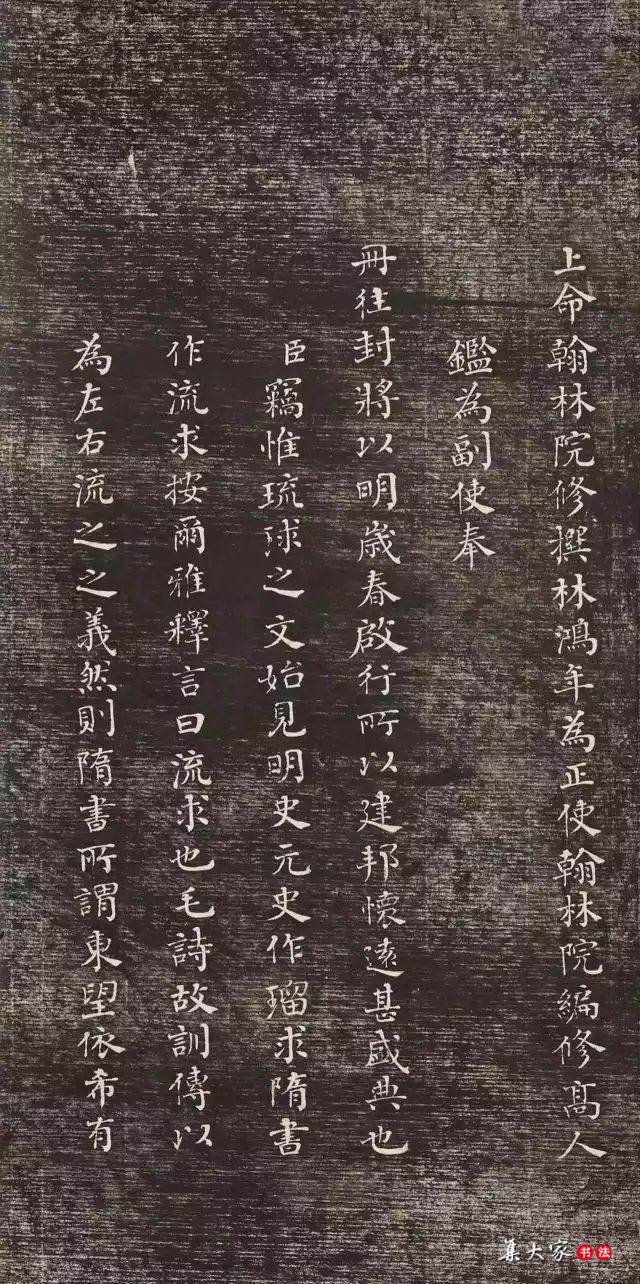 上命翰林院修撰林鴻年為正使翰林院編修高人
鑑為副使奉
冊往封將以明歲春啟行所以建邦懷遠甚盛典也
臣竊惟琉球之文始見明史元史作瑠求隋書
作流求按爾雅釋言曰流求也毛詩故訓傳以
為左右流之之義然則隋書所謂東望依希有
集大家書法